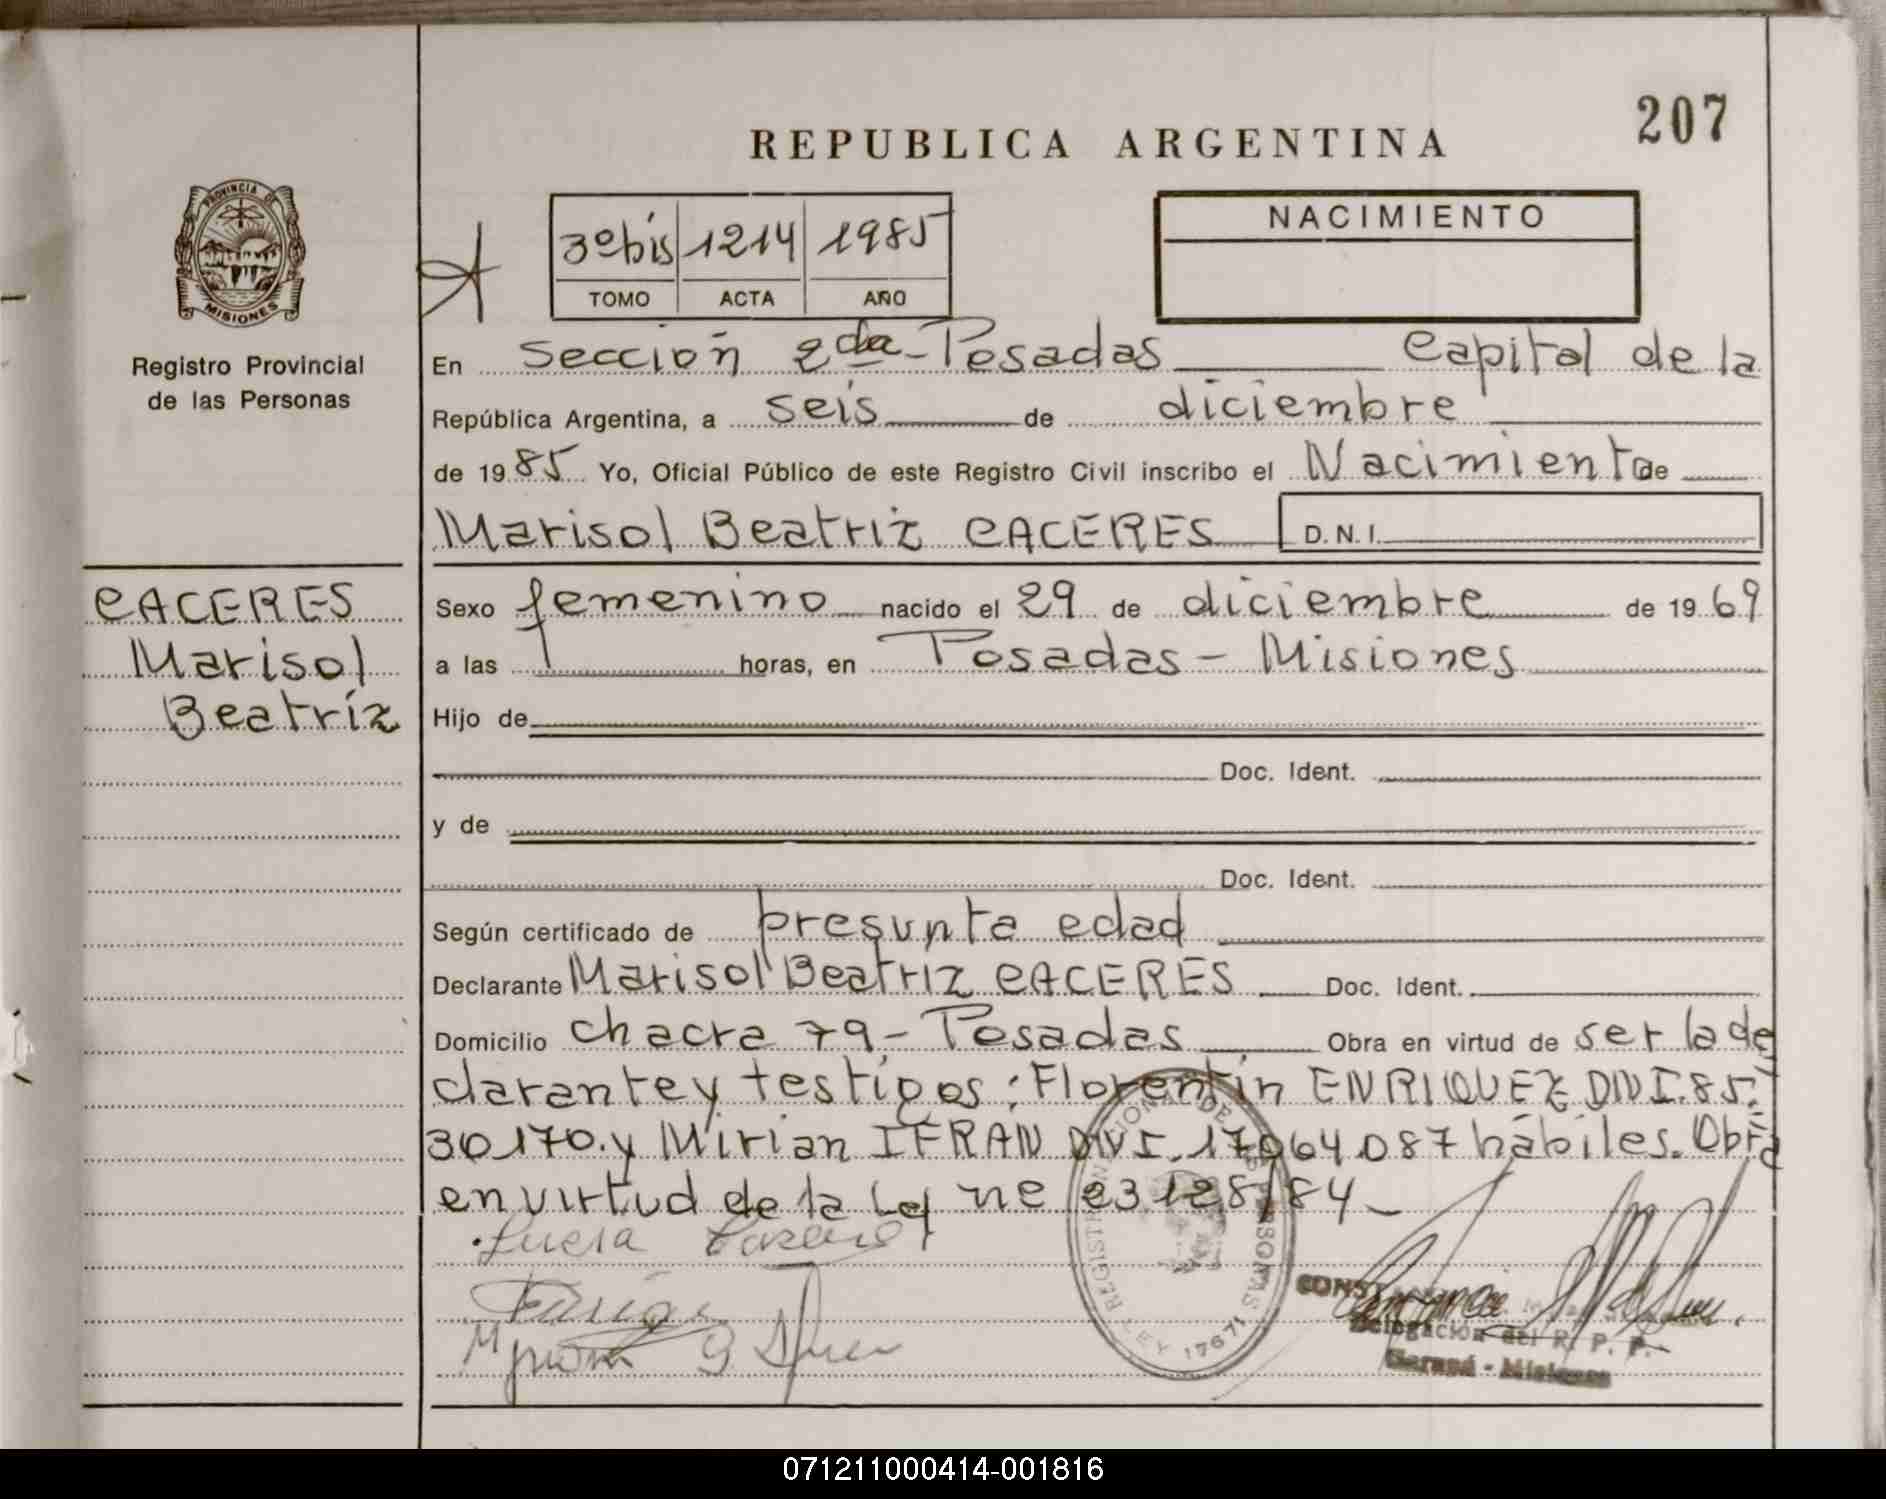 207
REPUBLICA ARGENTINA
PROVINCIA DE
MISIONES
Registro Provincial
de las Personas
3º bis 1214 1985
TOMO ACTA AÑO
NACIMIENTO
En Sección 2da - Posadas Capital de la
República Argentina, a seis de diciembre
de 1985 Yo, Oficial Público de este Registro Civil inscribo el Nacimiento de
Marisol Beatriz CACERES D.N.I.
CACERES
Marisol
Beatríz
Sexo femenino nacido el 29 de diciembre de 1969
a las horas, en Posadas - Misiones
Hijo de
Doc. Ident.
y de
Doc. Ident.
Según certificado de presunta edad
Declarante Marisol Beatriz CACERES Doc. Ident.
Domicilio chacra 79 - Posadas Obra en virtud de ser la de
clarante y testigos: Florentín ENRIQUEZ DNI. 85.
30170. y Mirian IFRAN DNI. 17064.087 hábiles. Obra
en virtud de la Ley nº 23128/84 -
REGISTRO NACIONAL DE LAS PERSONAS
LEY 17671
Delegación del R. P. P.
Garupá - Misiones
071211000414-001816